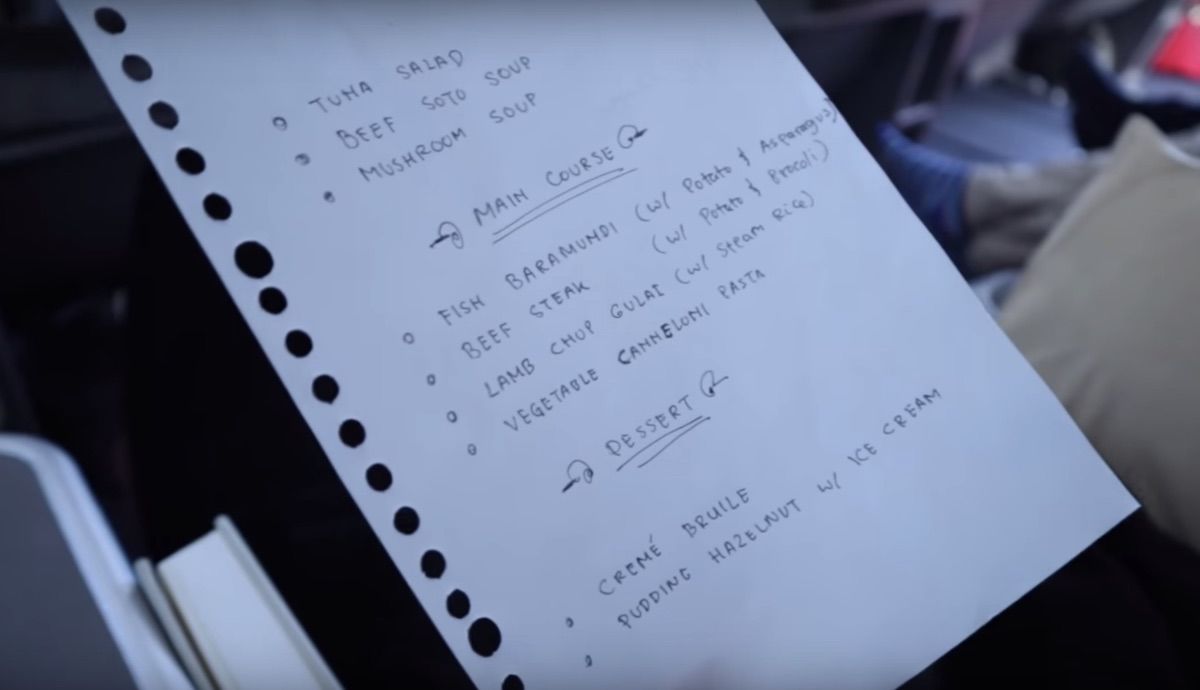 TUNA SALAD
BEEF SOTO SOUP
MUSHROOM SOUP
MAIN COURSE
FISH BARAMUNDI (w/ Potato & Asparagus)
BEEF STEAK (w/ Potato & Brocoli)
LAMB CHOP GULAI (w/ Steam Rice)
VEGETABLE CANNELONI PASTA
DESSERT
CREMÉ BRUILE
PUDDING HAZELNUT w/ ICE CREAM